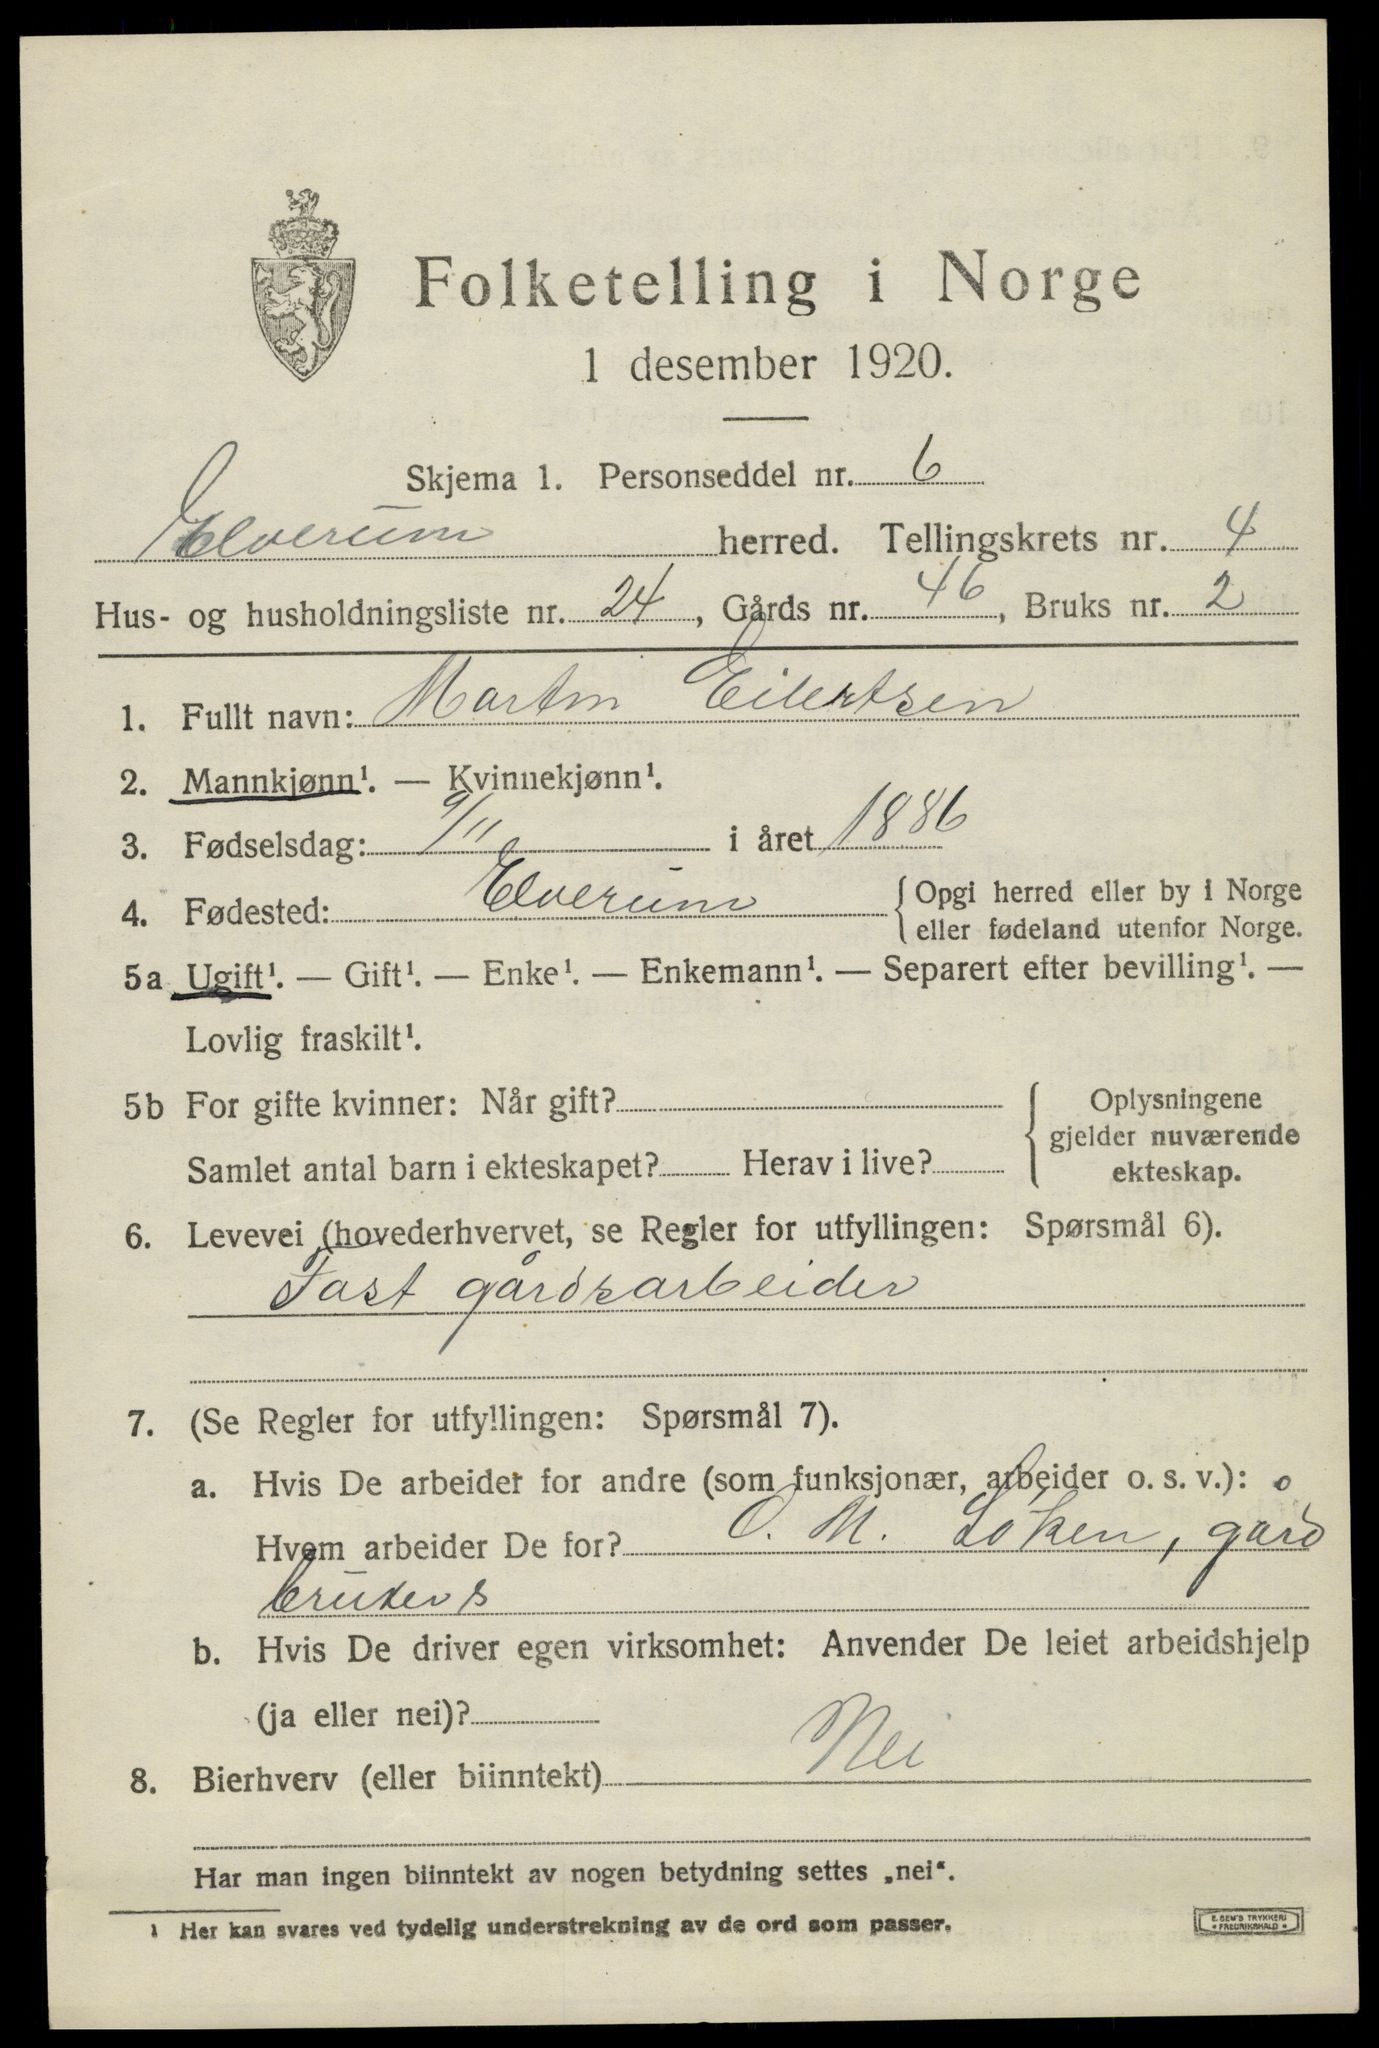 Folketelling i Norge
1 desember 1920.
Skjema 1. Personseddel nr. 6
Elverum herred. Tellingskrets nr. 4
Hus- og husholdningsliste nr. 24, Gårds nr. 46, Bruks nr. 2
1. Fullt navn: Martin Eilertsen
2. Mannkjønn¹. — Kvinnekjønn¹.
3. Fødselsdag: 9/11 i året 1886
4. Fødested: Elverum { Opgi herred eller by i Norge
eller fødeland utenfor Norge.
5a Ugift¹. — Gift¹. — Enke¹. — Enkemann¹. — Separert efter bevilling¹. —
Lovlig fraskilt¹.
5b For gifte kvinner: Når gift?
Samlet antal barn i ekteskapet? Herav i live?
Oplysningene
gjelder nuværende
ekteskap.
6. Levevei (hovederhvervet, se Regler for utfyllingen: Spørsmål 6).
Fast gårdsarbeider
7. (Se Regler for utfyllingen: Spørsmål 7).
a. Hvis De arbeider for andre (som funksjonær, arbeider o. s. v.):
Hvem arbeider De for? O. M. Løken, gård
brukers
b. Hvis De driver egen virksomhet: Anvender De leiet arbeidshjelp
(ja eller nei)?
8. Bierhverv (eller biinntekt) Nei
Har man ingen biinntekt av nogen betydning settes „nei“.
¹ Her kan svares ved tydelig understrekning av de ord som passer.
E. SEM'S TRYKKERI
• FREDRIKSHALD •